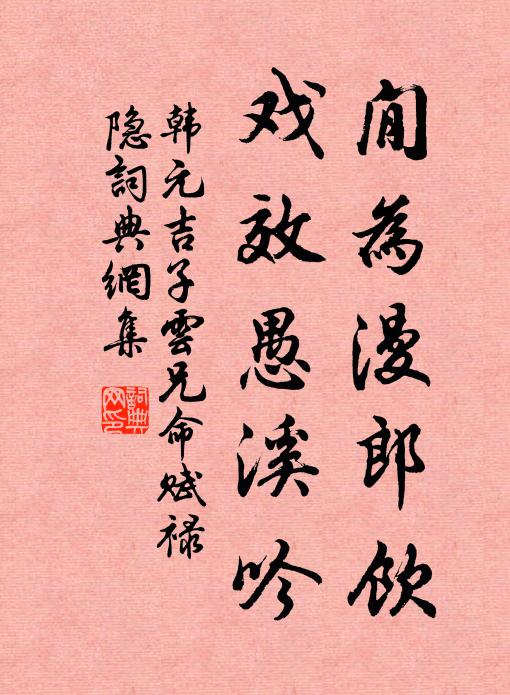 闲為漫郎飲
戏效愚溪吟
韩元吉子雲兄命赋禄
隐詞典網集
詞典网印